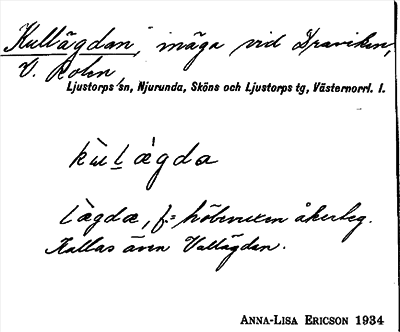 Kullägdan, inäga vid Draviken,
V. Bolen,
Ljustorps sn, Njurunda, Sköns och Ljustorps tg, Västernorrl. l.
kùlägda
lägda, f = höbruten åkerteg.
Kallas även Vallägdan.
ANNA-LISA ERICSON 1934